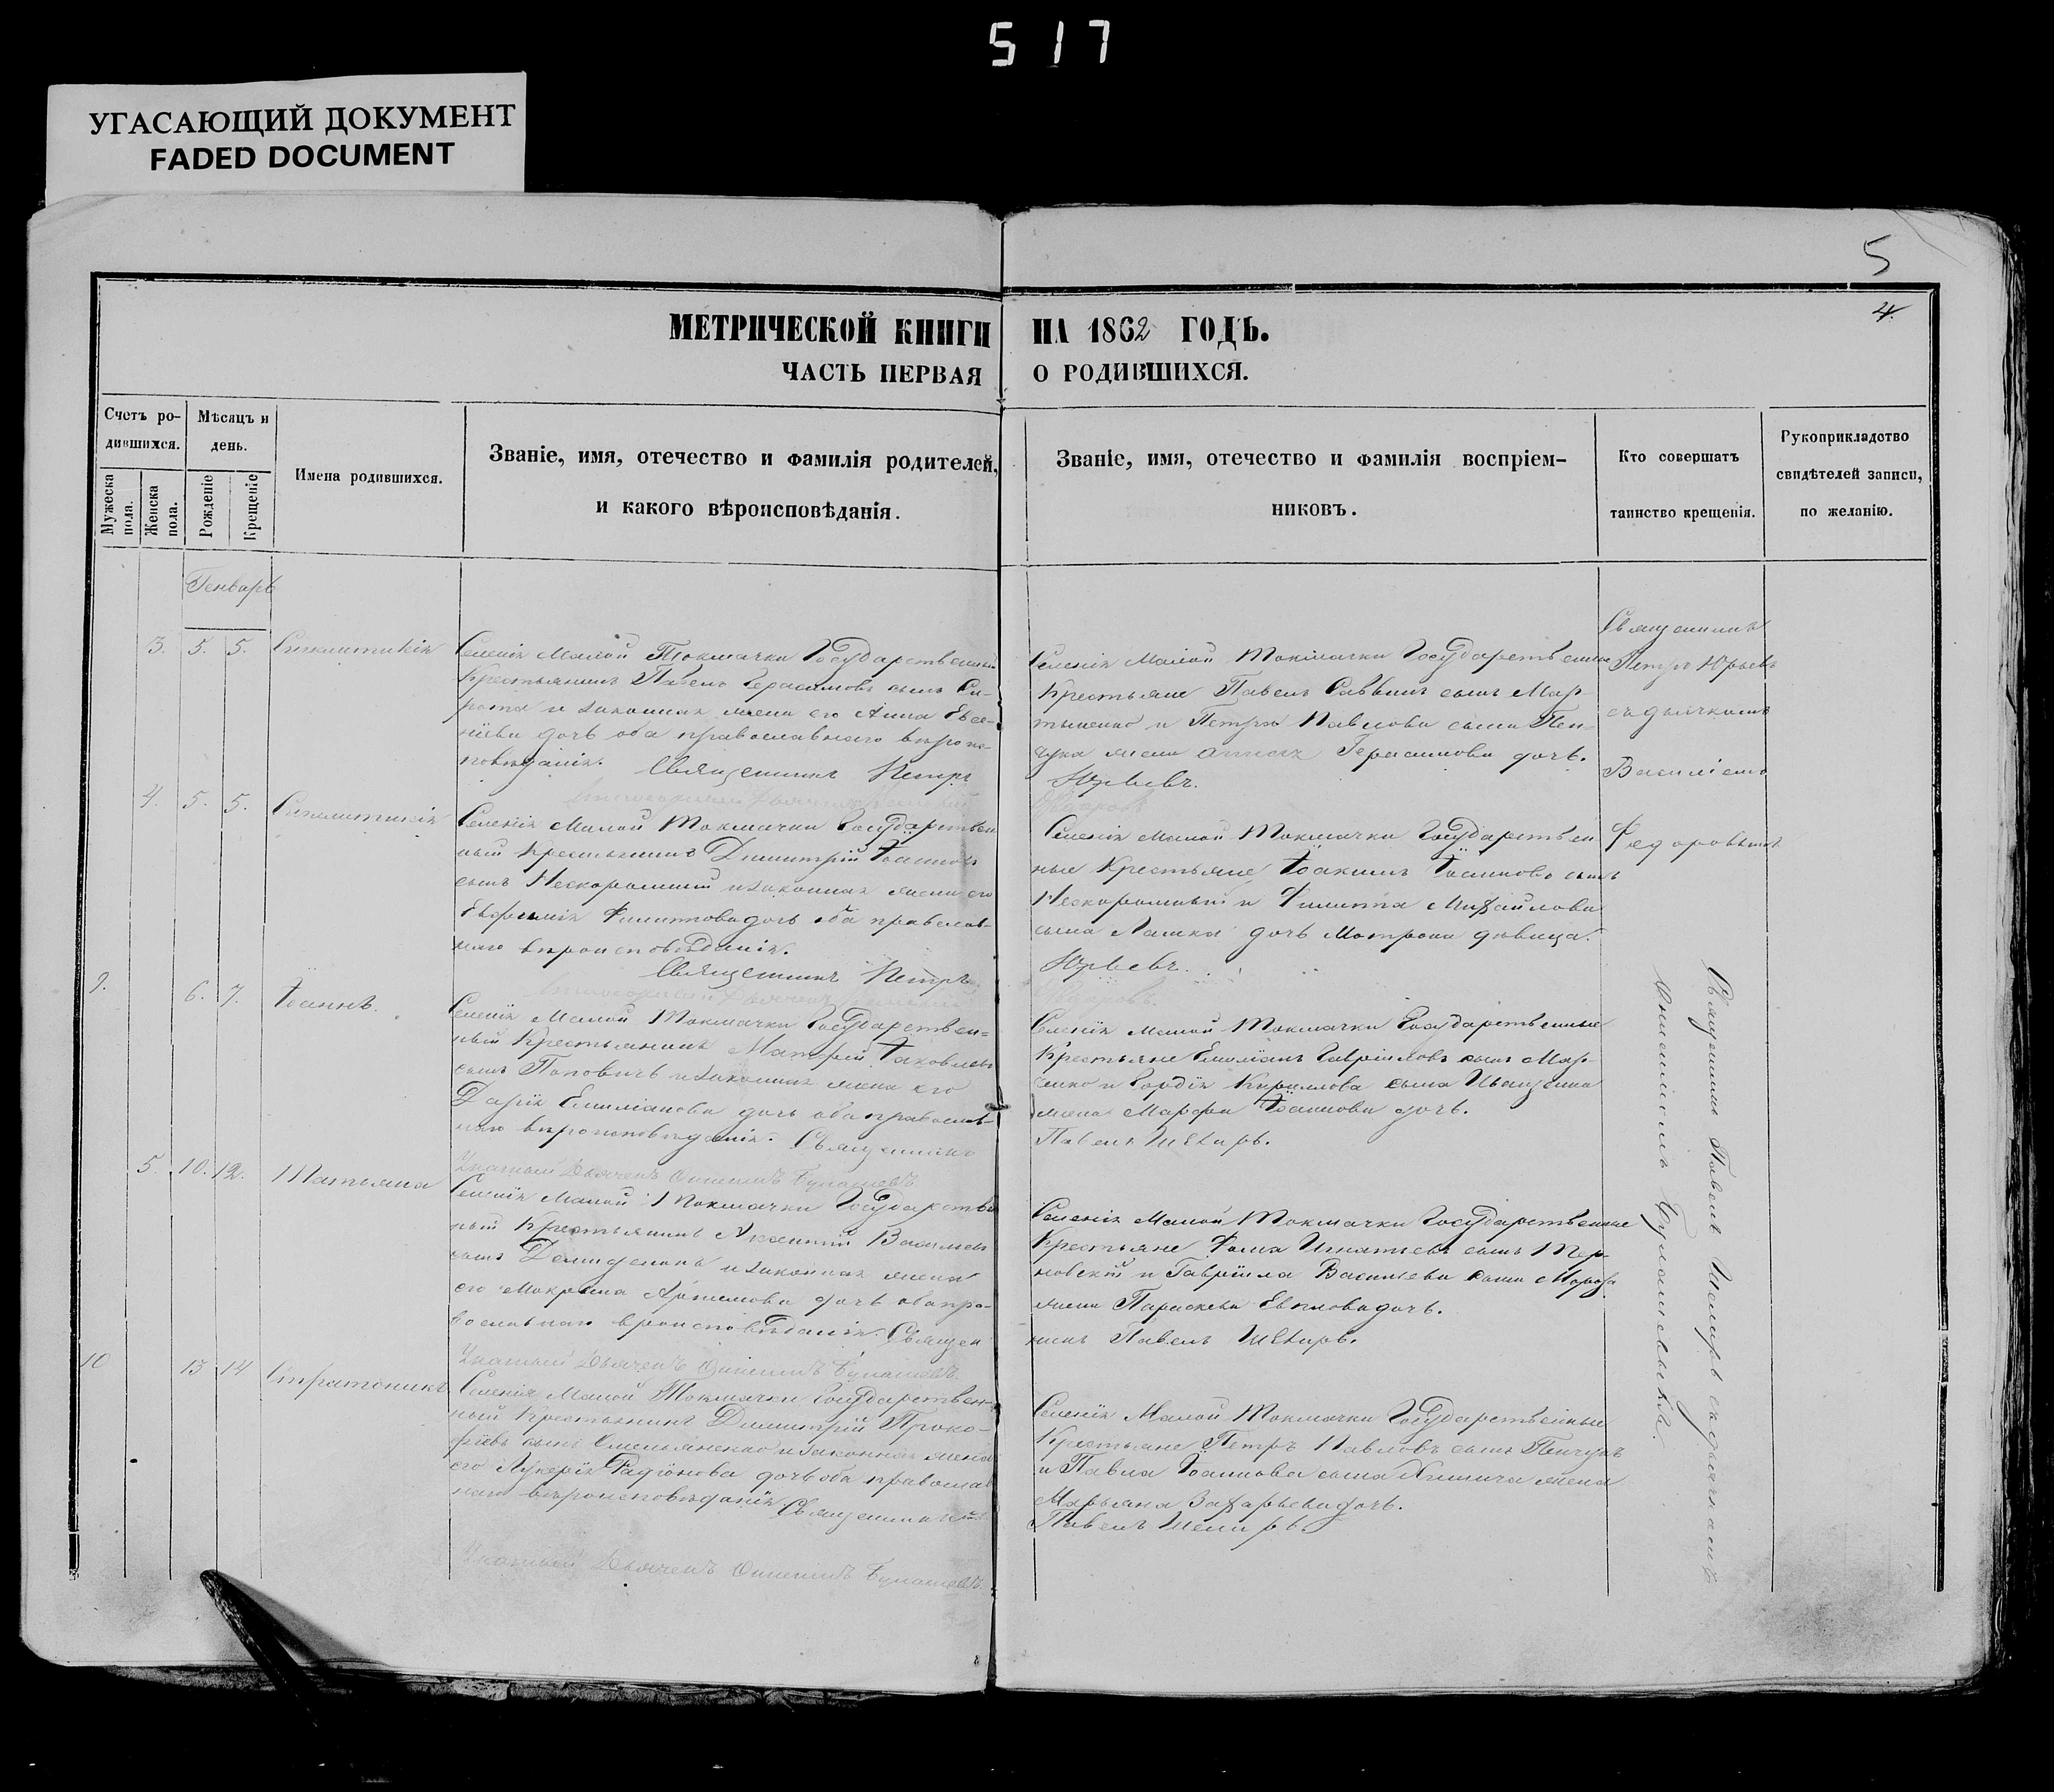 517
УГАСАЮЩИЙ ДОКУМЕНТ
FADED DOCUMENT
5
4.
МЕТРИЧЕСКОЙ КНИГИ НА 1862 ГОДЪ.
ЧАСТЬ ПЕРВАЯ О РОДИВШИХСЯ.
Счетъ ро-
дившихся.
Мужеска
пола.
Женска
пола.
Мѣсяцъ и
день.
Рожденіе
Крещеніе
Имена родившихся.
Званіе, имя, отечество и фамилія родителей,
и какого вѣроисповѣданія.
Званіе, имя, отечество и фамилія воспріем-
никовъ.
Кто совершатъ
таинство крещенія.
Рукоприкладство
свидѣтелей записи,
по желанію.
Генварь
3. 5. 5. Синклитикія
Селенія Малой Токмачки Государственный
Крестьянинъ Павелъ Герасимовъ сынъ Си-
рота и законная жена его Анна Евсе-
ніева дочь оба православнаго вѣроис-
повѣданія. Священникъ Петръ
Селенія Малой Токмачки Государственные
Крестьяне Павелъ Саввинъ сынъ Мар-
тыненко и Петра Павлова сына Пен-
чука жена Герасимова дочь.
Юрьевъ.
Священникъ
Петръ Юрьевъ
съ дьячкомъ
Василіемъ
Федоровымъ
4. 5. 5. Синклитикія
Селенія Малой Токмачки Государствен
ный Крестьянинъ Димитрій Іоанновъ
сынъ Нескоромный и законная жена его
Евфимія Филиппова дочь оба православ-
наго вѣроисповѣданія.
Священникъ Петръ
Селенія Малой Токмачки Государствен
ные Крестьяне Іоакимъ Іоанновъ сынъ
Нескоромный и Филиппа Михайлова
сына Лашка дочь Матрона дѣвица.
Юрьевъ.
9. 6. 7. Іоаннъ.
Селенія Малой Токмачки Государствен-
ный Крестьянинъ Матфей Іаковлевъ
сынъ Поповичъ и законная жена его
Дарія Емиліанова дочь оба православ-
наго вѣроисповѣданія. Священникъ
Указный Дьячекъ Онисимъ
Селенія Малой Токмачки Государственные
Крестьяне Емиліанъ Гавріиловъ сынъ Мар-
ченко и Гордія Кириллова сына Иващенка
жена Марфа Іоаннова дочь.
Павелъ Шекиръ.
5. 10. 12. Татьяна
Селенія Малой Токмачки Государствен
ный Крестьянинъ Аксентій Васильевъ
сынъ Демиденокъ и законная жена
его Макрина Артемова дочь оба пра-
вославнаго вѣроисповѣданія. Священ
Указный Дьячекъ Онисимъ
Селенія Малой Токмачки Государственные
Крестьяне Фома Игнатьевъ сынъ Тер-
новскій и Гавріила Васильева сына Мороза
жена Параскева Евплова дочь.
никъ Павелъ Шекиръ.
10 13 14 Стратоникъ
Селенія Малой Токмачки Государствен-
ный Крестьянинъ Димитрій Проко-
фіевъ сынъ Емельяненко и законная жена
его Лукерія Радіонова дочь оба православ
наго вѣроисповѣданія Священникъ
Указный Дьячекъ Онисимъ
Селенія Малой Токмачки Государственные
Крестьяне Петръ Павловъ сынъ Пенчукъ
и Павла Іоаннова сына жена
Марьяна Захарьева дочь.
Павелъ Шекиръ
Священникъ Павелъ Шекиръ съ дьячкомъ